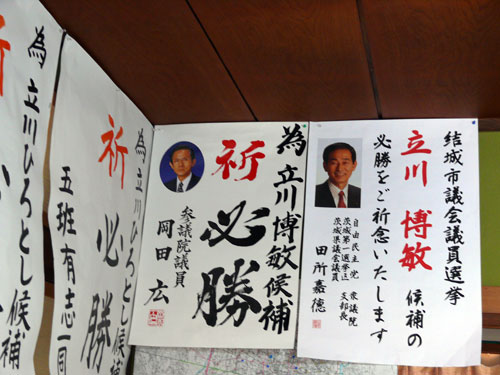 結城市議会議員選挙
立川 博敏 候補の
必勝をご祈念いたします
自由民主党 衆議院
茨城第一選挙区 支部長
茨城県議会議員
田所嘉徳
為 立川博敏候補
祈
必勝
参議院議員
岡田 広
為 立川ひろとし候補
祈
必勝
五班有志一同
為 立川ひろとし候補
祈